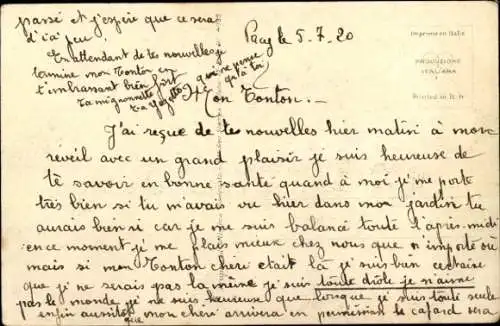 passé et j'espère que ce sera
d'ici peu.
En attendant de tes nouvelles je
termine mon Tonton en
t'embrassant bien fort
Ta mignonnette
qui ne pense
qu'à toi
le 5.7.20
Imprimé en Italie
PRODUZIONE
ITALIANA
Printed in Italy
Mon Tonton. _
J'ai reçue de tes nouvelles hier matin à mon
réveil avec un grand plaisir je suis heureuse de
te savoir en bonne santé quand à moi je me porte
très bien si tu m'avais vu hier dans mon jardin tu
aurais bien ri car je me suis balancé toute l'après-midi
en ce moment je me plais mieux chez nous que n'importe où
mais si mon Tonton chéri était là je suis bien certaine
que je ne serais pas la même je suis toute drôle je n'aime
pas le monde je ne suis heureuse que lorsque je suis toute seule
enfin aussitôt que mon chéri arrivera en permission le cafard sera